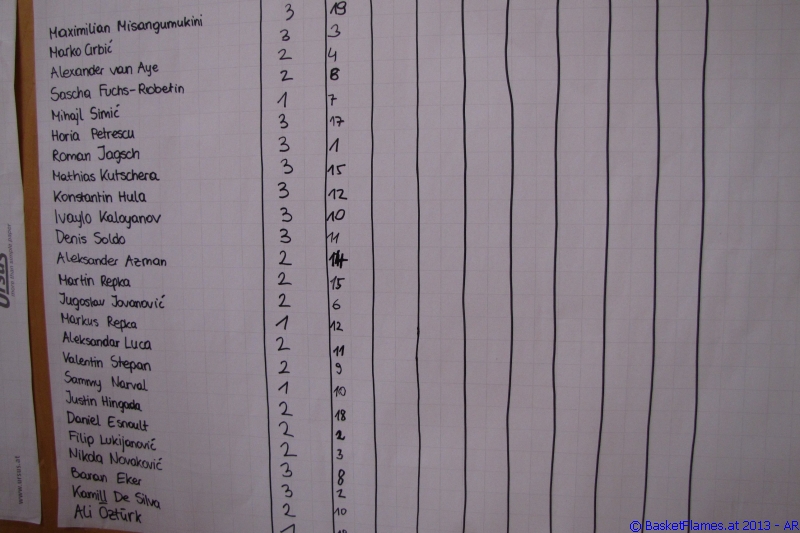 Maximilian Misangumukini 3 19
Marko Grbić 3 3
Alexander van Aye 2 4
Sascha Fuchs-Robetin 2 8
Mihajl Simić 1 7
Horia Petrescu 3 17
Roman Jagsch 3 1
Mathias Kutschera 3 15
Konstantin Hula 3 12
Ivaylo Kaloyanov 3 10
Denis Soldo 3 11
Aleksander Azman 2 14
Martin Repka 2 15
Jugoslav Jovanović 2 6
Markus Repka 1 12
Aleksandar Luca 2 11
Valentin Stepan 2 9
Sammy Narval 1 10
Justin Hingada 2 18
Daniel Esnault 2 2
Filip Lukijanović 2 3
Nikola Novaković 3 8
Baran Eker 3 2
Kamill De Silva 2 10
Ali Öztürk 1
ursus
www.ursus.at
© BasketFlames.at 2013 - AR